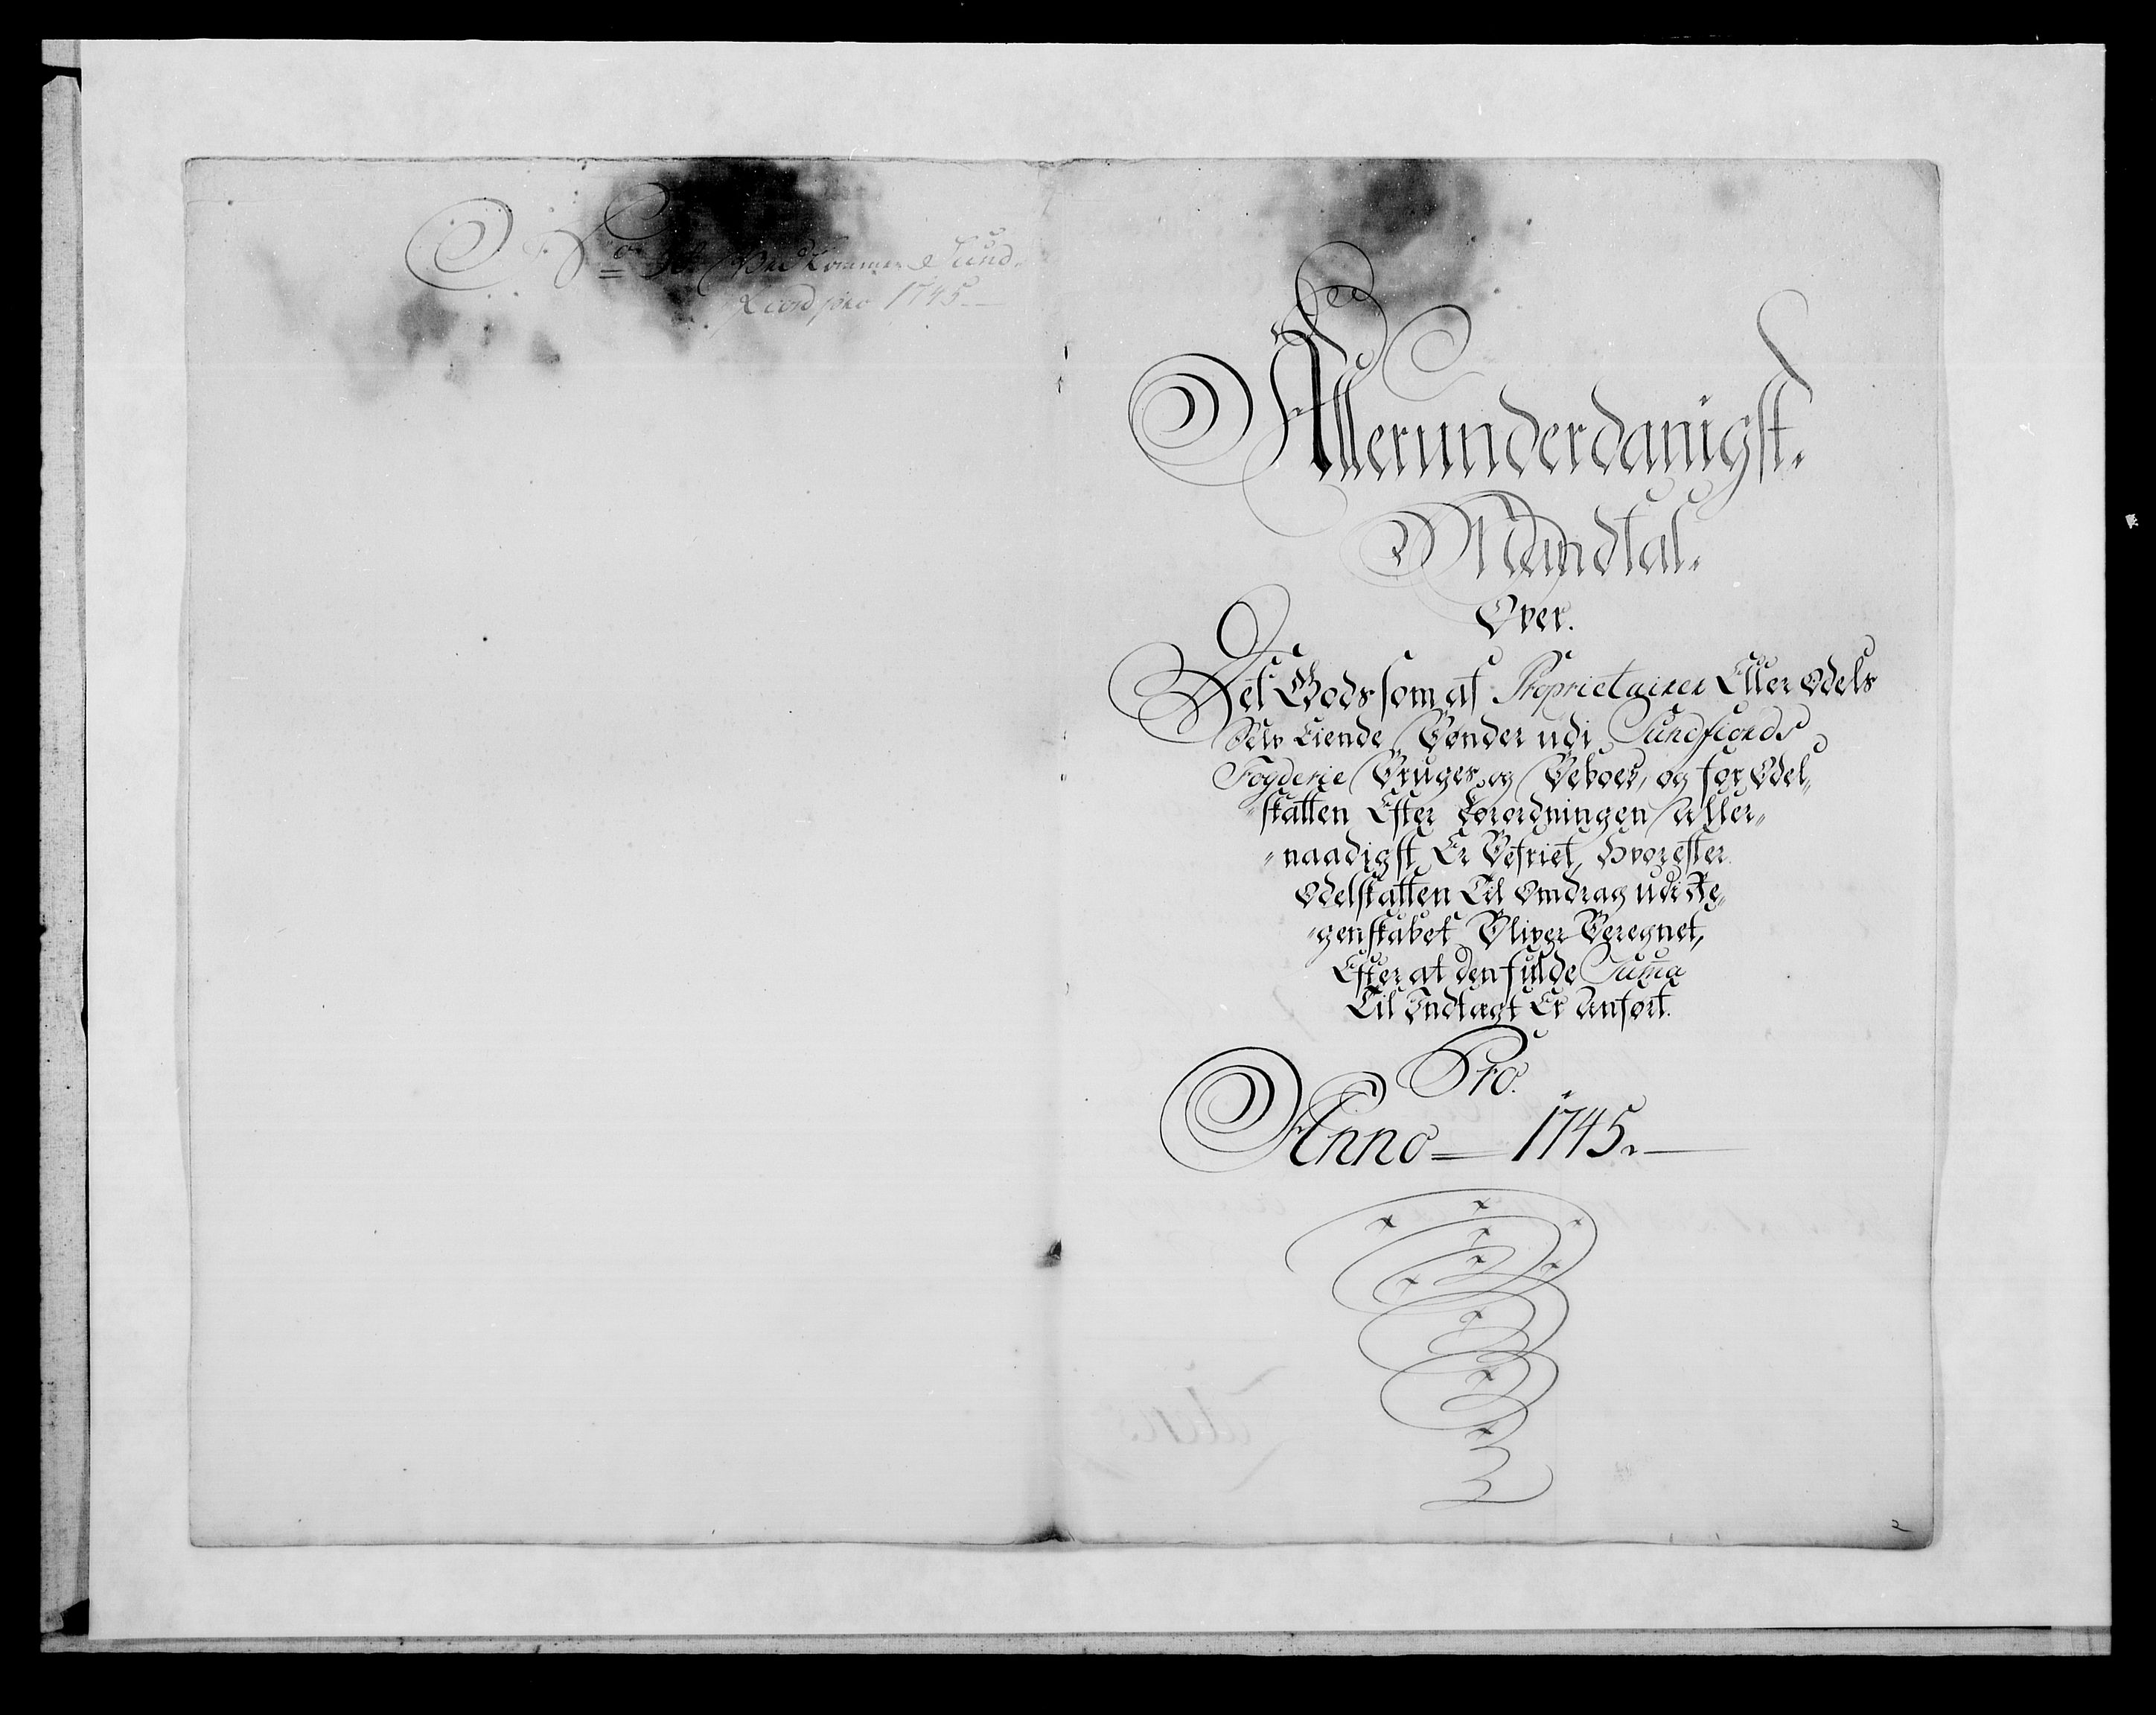 Vedkommende Sund-
fiord pro 1745.
Allerunderdanigst.
Mandtal.
Over.
Det Gods som af Proprietairer Eller Odels
Selv Eiende Bønder udi Sundfiords
Fogderie Bruges og Beboes, og for Odel„
„skatten Efter Forordningen Aller„
„naadigst Er Befriet, Hvorefter
Odelskatten Til Omdrag udi Re„
„genskabet Bliver Beregnet,
Efter at den fulde Suma
Til Indtægt Er Anført.
Pro.
Anno 1745.
2